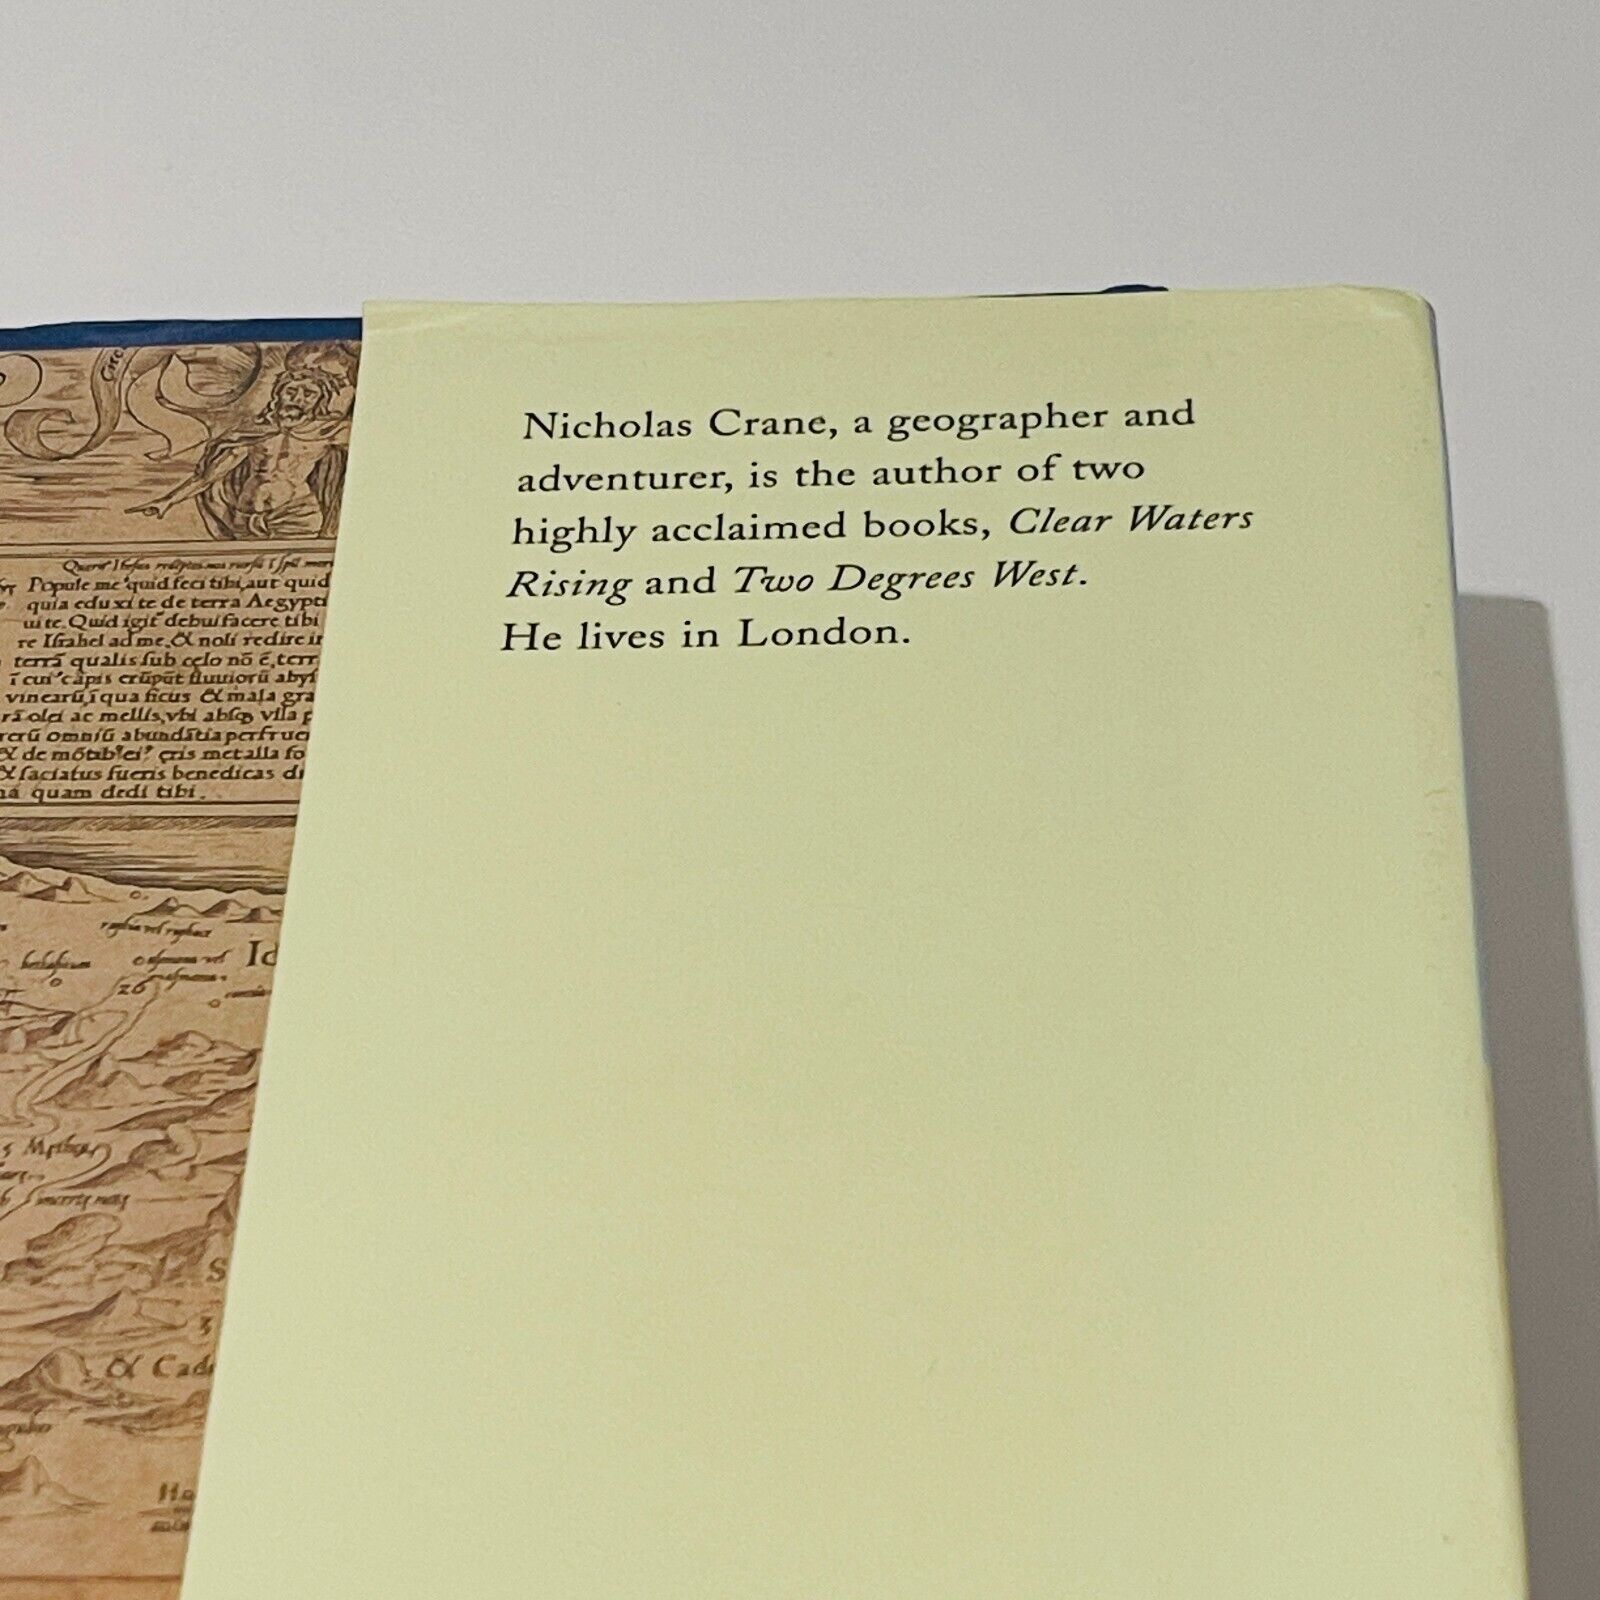 Nicholas Crane, a geographer and
adventurer, is the author of two
highly acclaimed books, Clear Waters
Rising and Two Degrees West.
He lives in London.
Popule me quid feci tibi, aut quid
quia eduxi te de terra Aegypti
uite. Quid igit debui facere tibi
re Israhel ad me, & noli redire in
terrā qualis sub celo nō ē, terr
ī cui capis erūpūt fluuiorū abys
vinearū, ī qua ficus & mala gra
rā olei ac mellis, vbi absq vlla p
rerū omniū abundātia perfruc
& de mōtib ei eris metalla fo
& saciatus fueris benedicas d
quam dedi tibi.
Id
26
S
3
& Cad